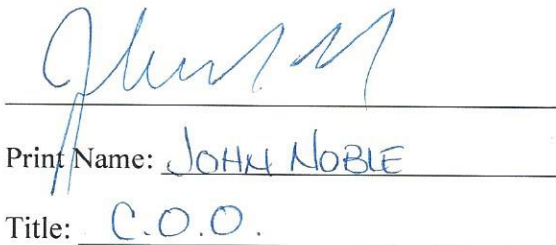 Print Name: JOHN NOBLE
Title: C.O.O.